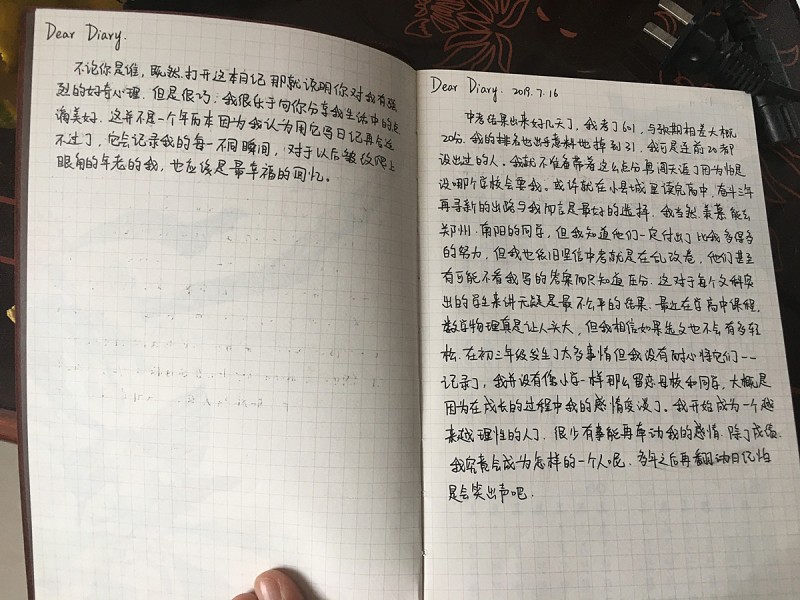 Dear Diary.
不论你是谁，既然打开这本日记那就说明你对我有强
烈的好奇心理. 但是很巧, 我很乐于向你分享我生活中的点
滴美好. 这并不是一个年历本因为我认为用它写日记再合适
不过了, 它会记录我的每一不同瞬间, 对于以后皱纹爬上
眼角的年老的我, 也应该是最幸福的回忆.
Dear Diary. 2019.7.16
中考结果出来好几天了, 我考了601, 与预期相差大概
20分. 我的排名也出乎意料地掉到31. 我可是连前20都
没出过的人. 我就不准备带着这么点分勇闯天涯了因为怕是
没哪个学校会要我. 或许就在小县城里读完高中, 奋斗三年
再寻新的出路与我而言是最好的选择. 我当然羡慕能去
郑州. 南阳的同学, 但我知道他们一定付出了比我多得多
的努力, 但我也依旧坚信中考就是在乱改卷, 他们甚至
有可能不看我写的答案而只知道压分. 这对于每个文科突
出的学生来讲无疑是最不公平的结果. 最近在学高中课程,
数学物理真是让人头大, 但我相信如果选文也不会有多轻
松. 在初三年级发生了太多事情但我没有耐心将它们一一
记录了, 我并没有像小学一样那么留恋母校和同学, 大概是
因为在成长的过程中我的感情变淡了. 我开始成为一个越
来越理性的人了. 很少有事能再牵动我的感情. 除了成绩.
我究竟会成为怎样的一个人呢. 多年之后再翻动日记怕
是会笑出声吧.